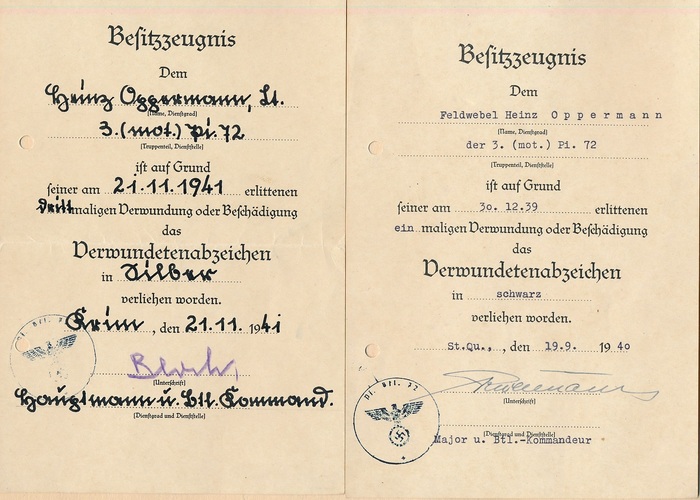 Besitzzeugnis
Dem
Heinz Oppermann, Lt.
(Name, Dienstgrad)
3. (mot.) Pi. 72
(Truppenteil, Dienststelle)
ist auf Grund
seiner am 21.11.1941 erlittenen
drittmaligen Verwundung oder Beschädigung
das
Verwundetenabzeichen
in Silber
verliehen worden.
Krim, den 21.11. 1941
(Unterschrift)
Hauptmann u. Btl. Command.
(Dienstgrad und Dienststelle)
Besitzzeugnis
Dem
Feldwebel Heinz Oppermann
(Name, Dienstgrad)
der 3. (mot.) Pi. 72
(Truppenteil, Dienststelle)
ist auf Grund
seiner am 30. 12.39 erlittenen
ein maligen Verwundung oder Beschädigung
das
Verwundetenabzeichen
in schwarz
verliehen worden.
St.Qu., , den 19.9. 1940
(Unterschrift)
(Dienstgrad und Dienststelle)
Major u. Btl.-Kommandeur